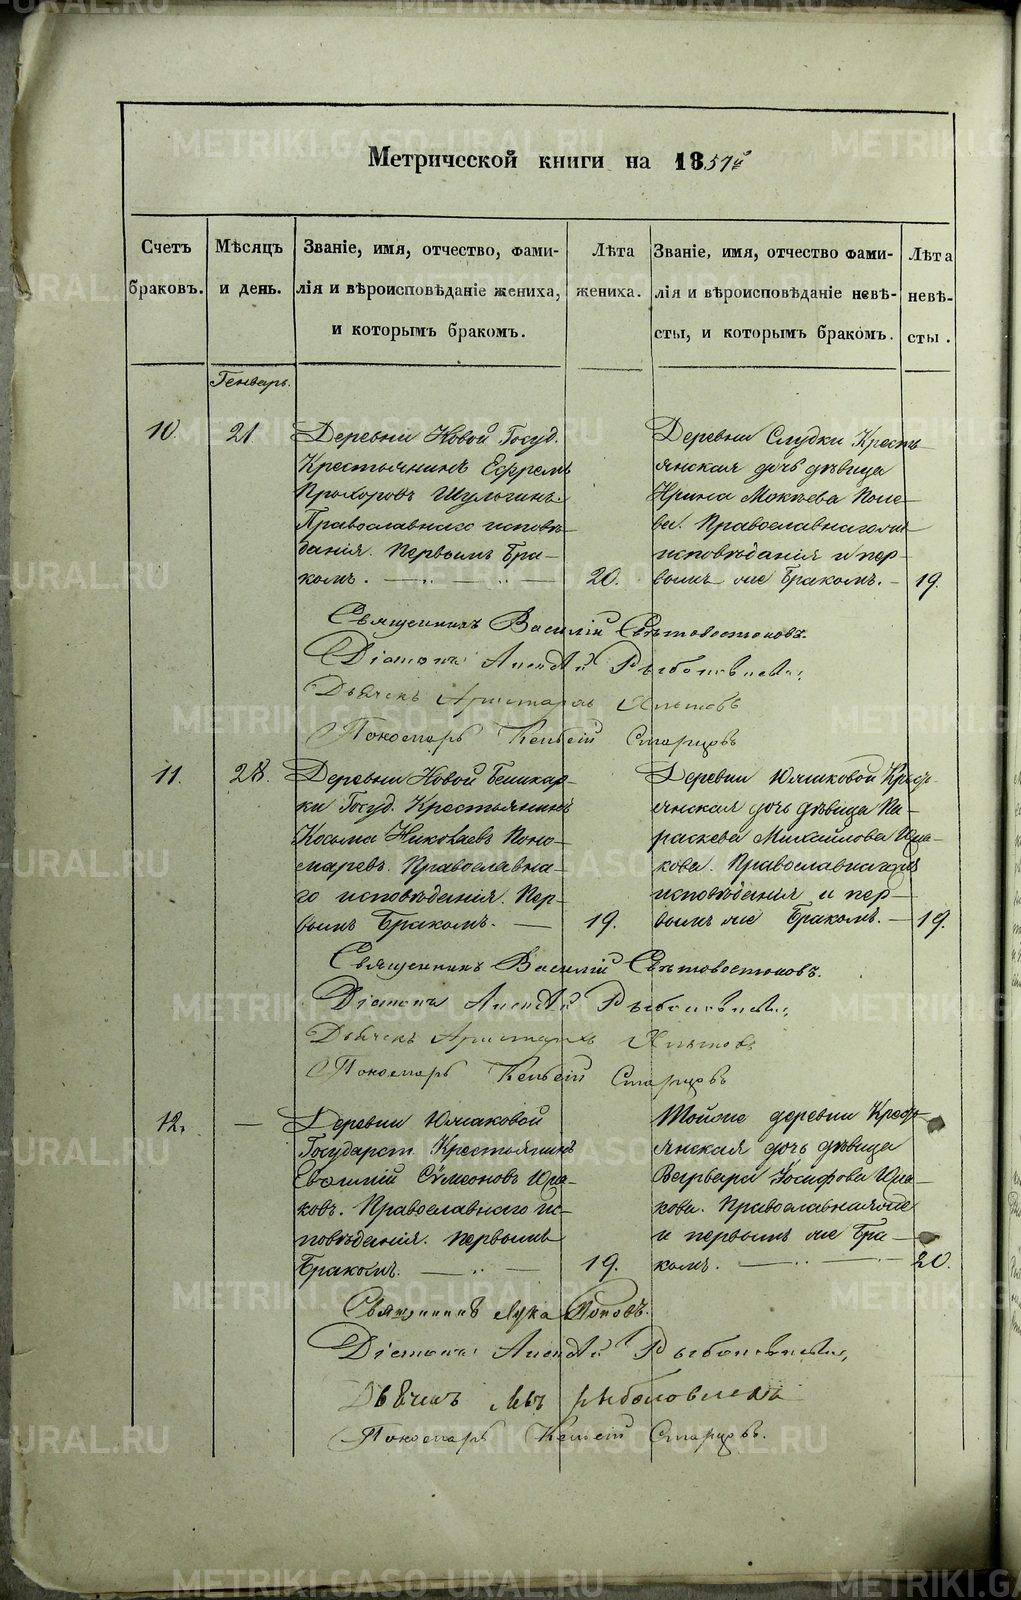 Метрической книги на 1857й
Счетъ браковъ.
Мѣсяцъ и день.
Званіе, имя, отчество, фами-
лія и вѣроисповѣданіе жениха,
и которымъ бракомъ.
Лѣта жениха.
Званіе, имя, отчество фами-
лія и вѣроисповѣданіе невѣ-
сты, и которымъ бракомъ.
Лѣта невѣ-
сты.
Генварь.
10.
21
Деревни Новой Госуд.
Крестьянинъ Ефремъ
Прохоровъ Шульгинъ.
Православнаго исповѣ-
данія. Первымъ Бра-
комъ.
20.
Деревни Слудки Кресть
янская дочь дѣвица
Ирина Мокѣева
Православнаго
исповѣданія и пер-
вымъ же Бракомъ.
19.
Священникъ Василій Свѣтовостоковъ.
Діаконъ Алексѣй
Дьячекъ Аристархъ
Пономарь Старцовъ
11.
28.
Деревни Новой
Госуд. Крестьянинъ
Косьма Николаевъ Поно-
маревъ. Православна-
го исповѣданія. Пер-
вымъ Бракомъ.
19.
Деревни Юшковой
янская дочь дѣвица Па-
раскева Михайлова
Православнаго
исповѣданія и пер-
вымъ же Бракомъ.
19.
Священникъ Василій Свѣтовостоковъ.
Діаконъ Алексѣй
Дьячекъ Аристархъ
Пономарь Старцовъ
12.
Деревни
Государст. Крестьянинъ
Евсигній Сѵмеоновъ
ковъ. Православнаго ис-
повѣданія. Первымъ
Бракомъ.
19.
Тойже деревни
янская дочь дѣвица
Варвара Іосифова
кова. Православнаго же
и первымъ же Бра-
комъ.
20.
Священникъ Лука Поповъ.
Діаконъ Алексѣй
Дьячекъ Левъ Рыболовлевъ
Пономарь Старцовъ.
METRIKI.GASO-URAL.RU